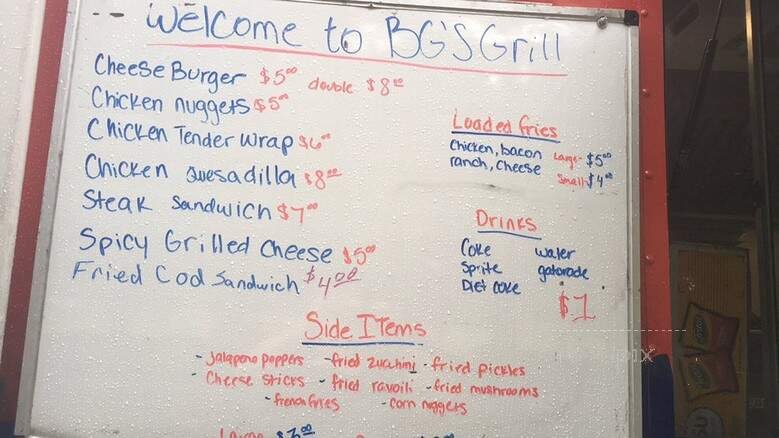 Welcome to BG'S Grill
Cheese Burger $5.00 double $8.00
Chicken nuggets $5.00
Chicken Tender Wrap $6.00
Chicken Quesadilla $8.00
Steak Sandwich $7.00
Spicy Grilled Cheese $5.00
Fried Cod Sandwich $4.00
Loaded fries
Chicken, bacon Large- $5.00
ranch, cheese Small $4.00
Drinks
Coke water
Sprite gatorade
Diet Coke
$1
Side Items
- Jalapeno poppers - fried zucchini - frird pickles
- Cheese sticks - fried ravoili - fried mushrooms
- french fries - corn nuggets
Large $3.00